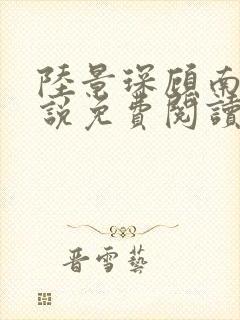 陸景琛顧南
說免費閱讀
晋雪藝